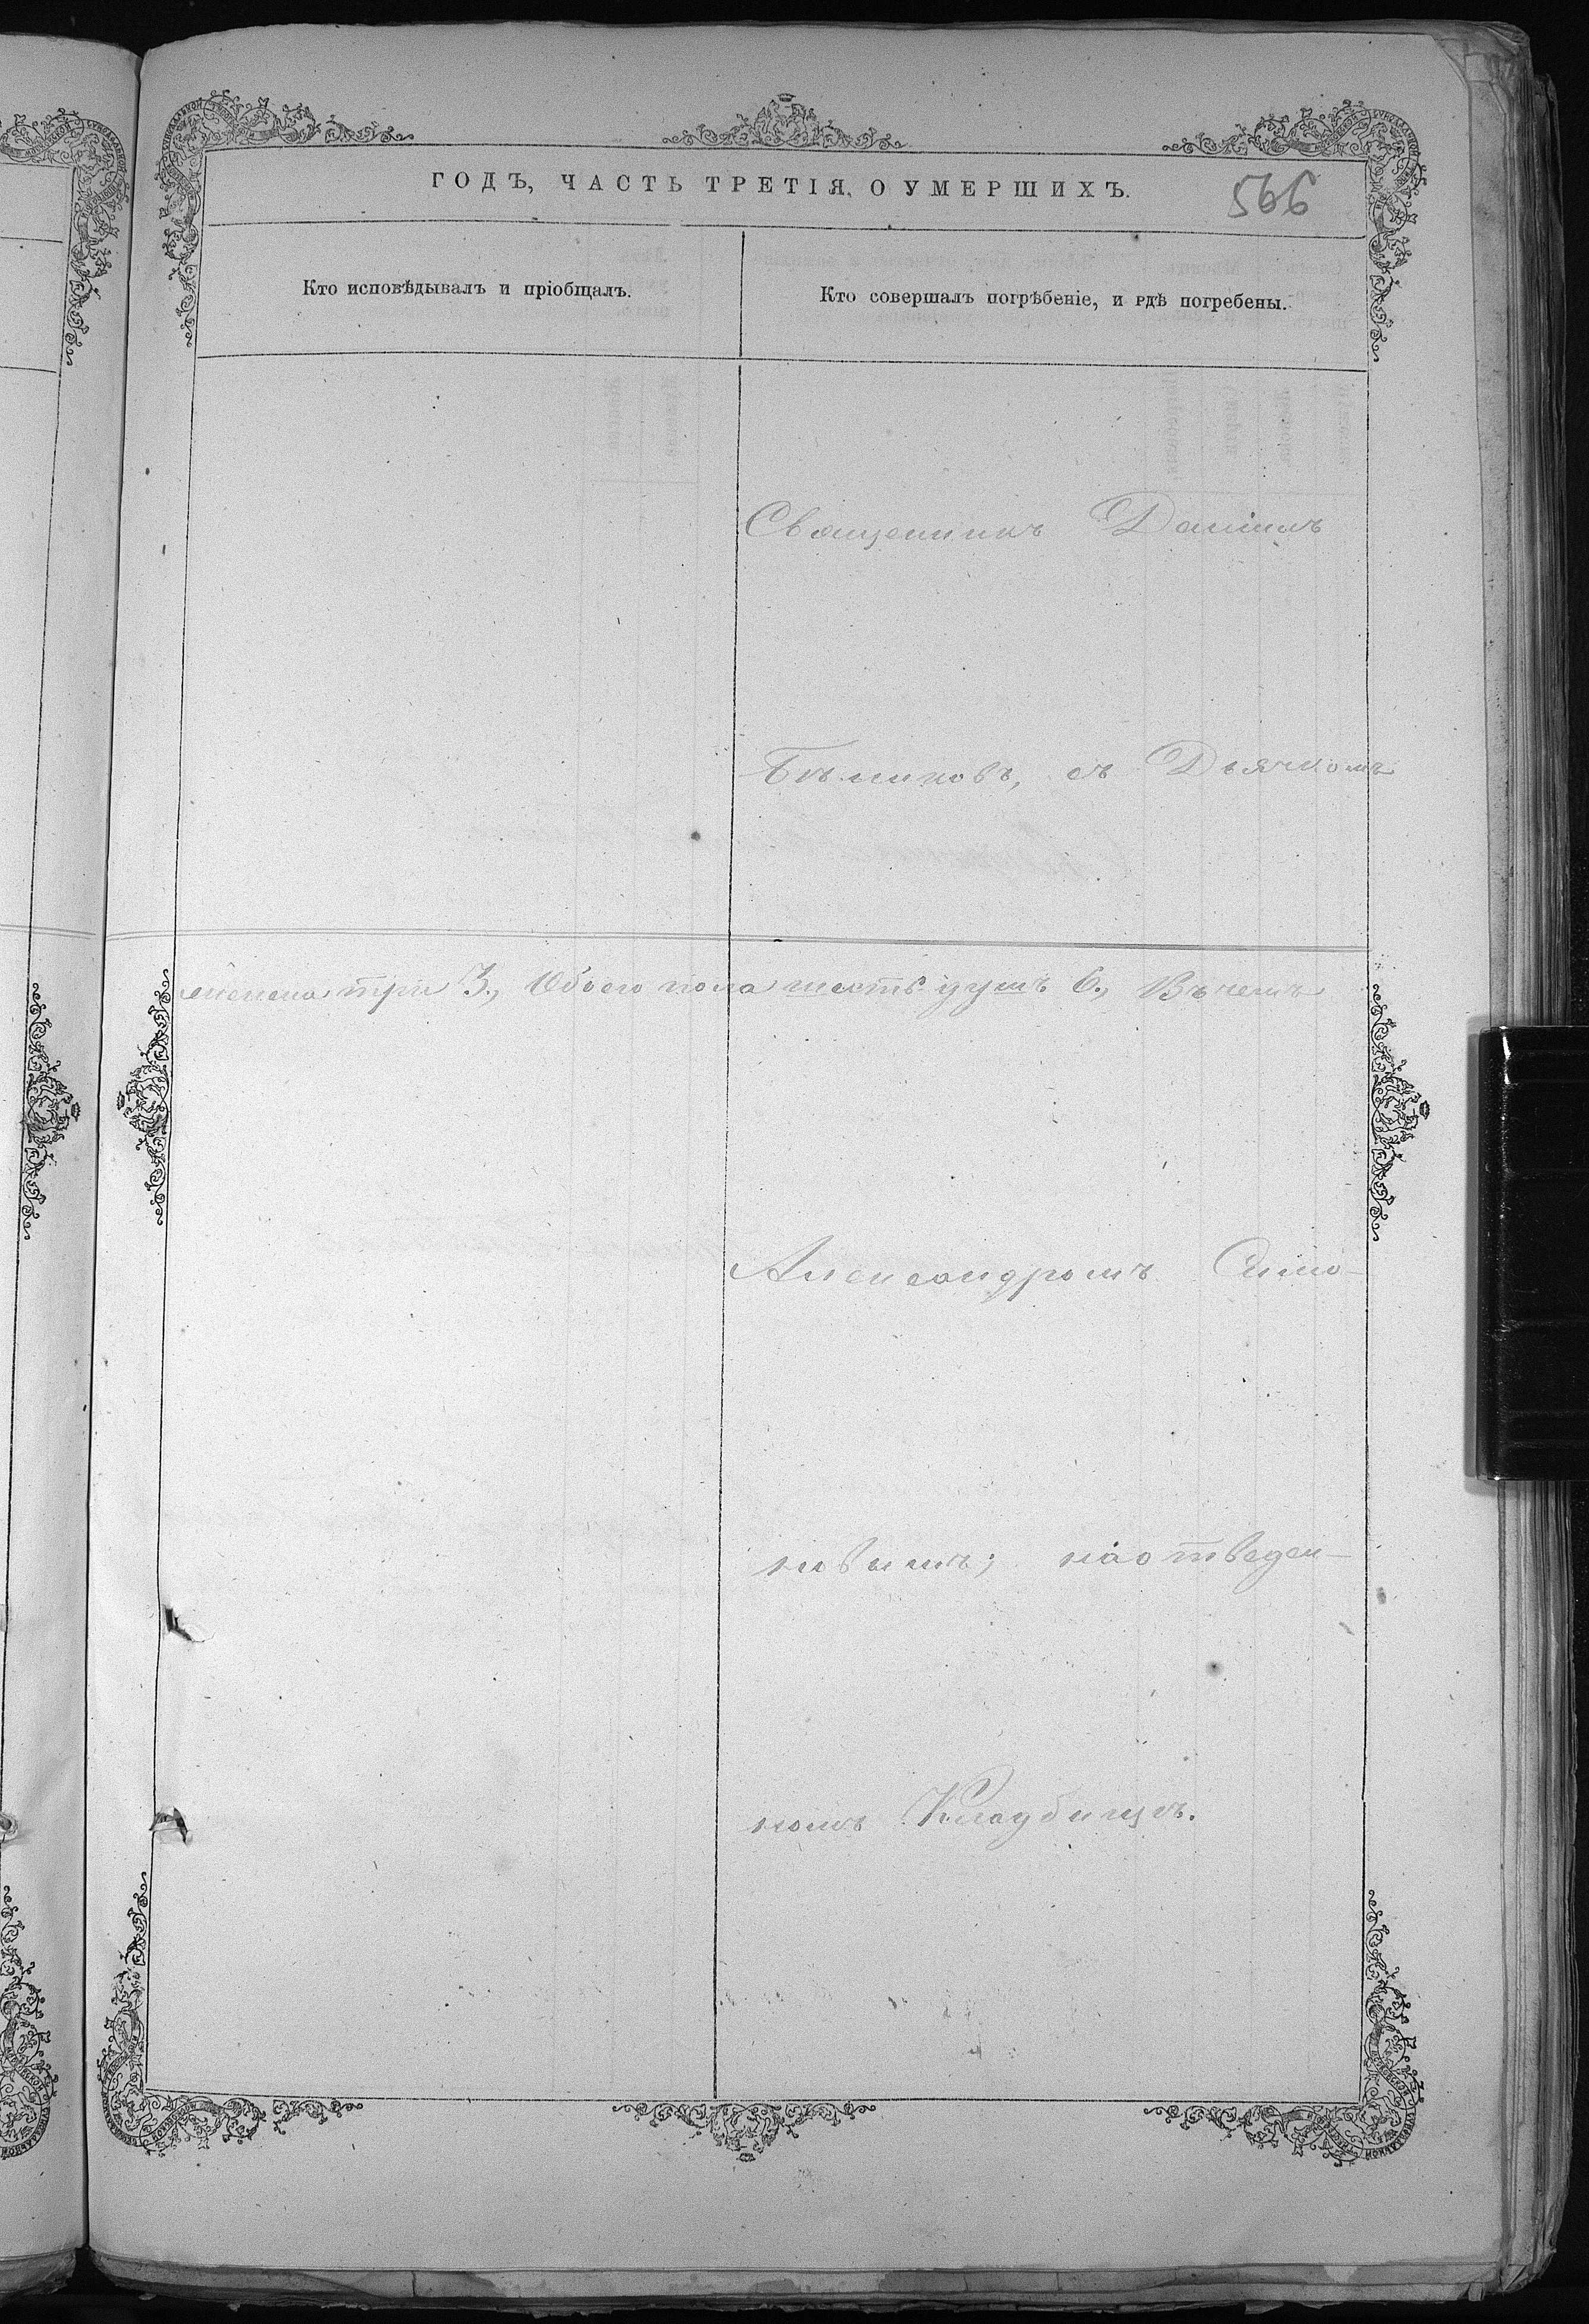 ГОДЪ, ЧАСТЬ ТРЕТІЯ, О УМЕРШИХЪ.
566
Кто исповѣдывалъ и пріобщалъ.
Кто совершалъ погрѣбеніе, и гдѣ погребены.
Священникъ Даніилъ
Бѣликовъ, съ Дьячкомъ
женска три 3., Обоего пола шесть душъ 6., Въ чемъ
Александромъ Симо-
новымъ; на отведен-
номъ Кладбищѣ.